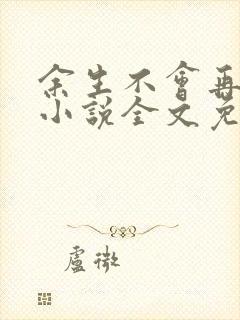 余生不會再
小說全文免
盧微